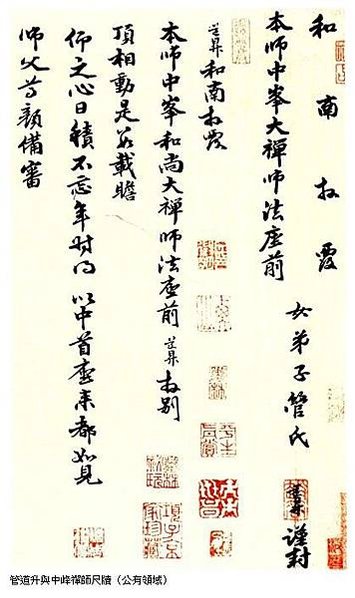 和南拜覆
本師中峯大禪師法座前
女弟子管氏道昇謹封
道昇和南拜覆
本師中峯和尚大禪師法座前道昇拜別
頂相動是數載瞻
仰之心日積不忘年時內以中首座來都如見
師父尊顏備審
管道升與中峰禪師尺牘（公有領域）